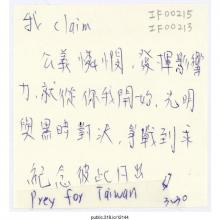 我 claim
IF00215
IF00213
公義憐憫,發揮影響
力,就從你我開始,光明
與黑暗對決,爭戰到末
紀念彼此付出
Pray for Taiwan
3.30
public.318.io/12144